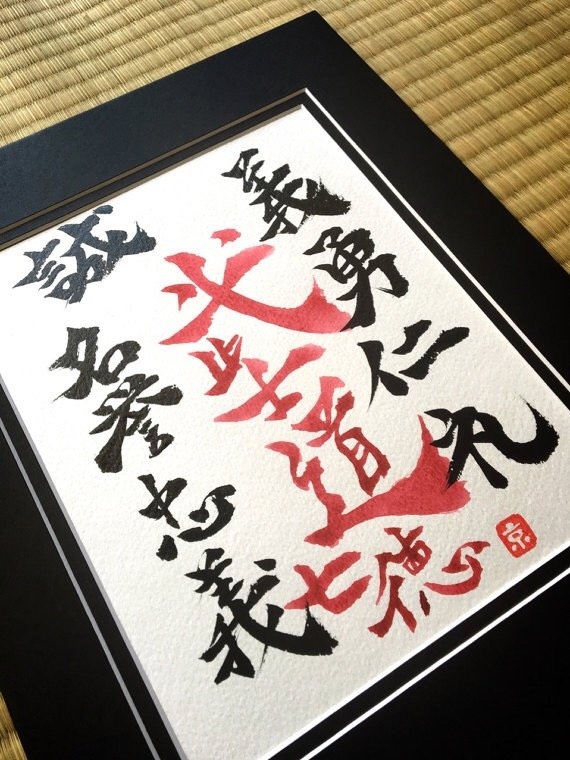 義
勇
仁
礼
武士道
七徳
誠
名誉
忠義
京